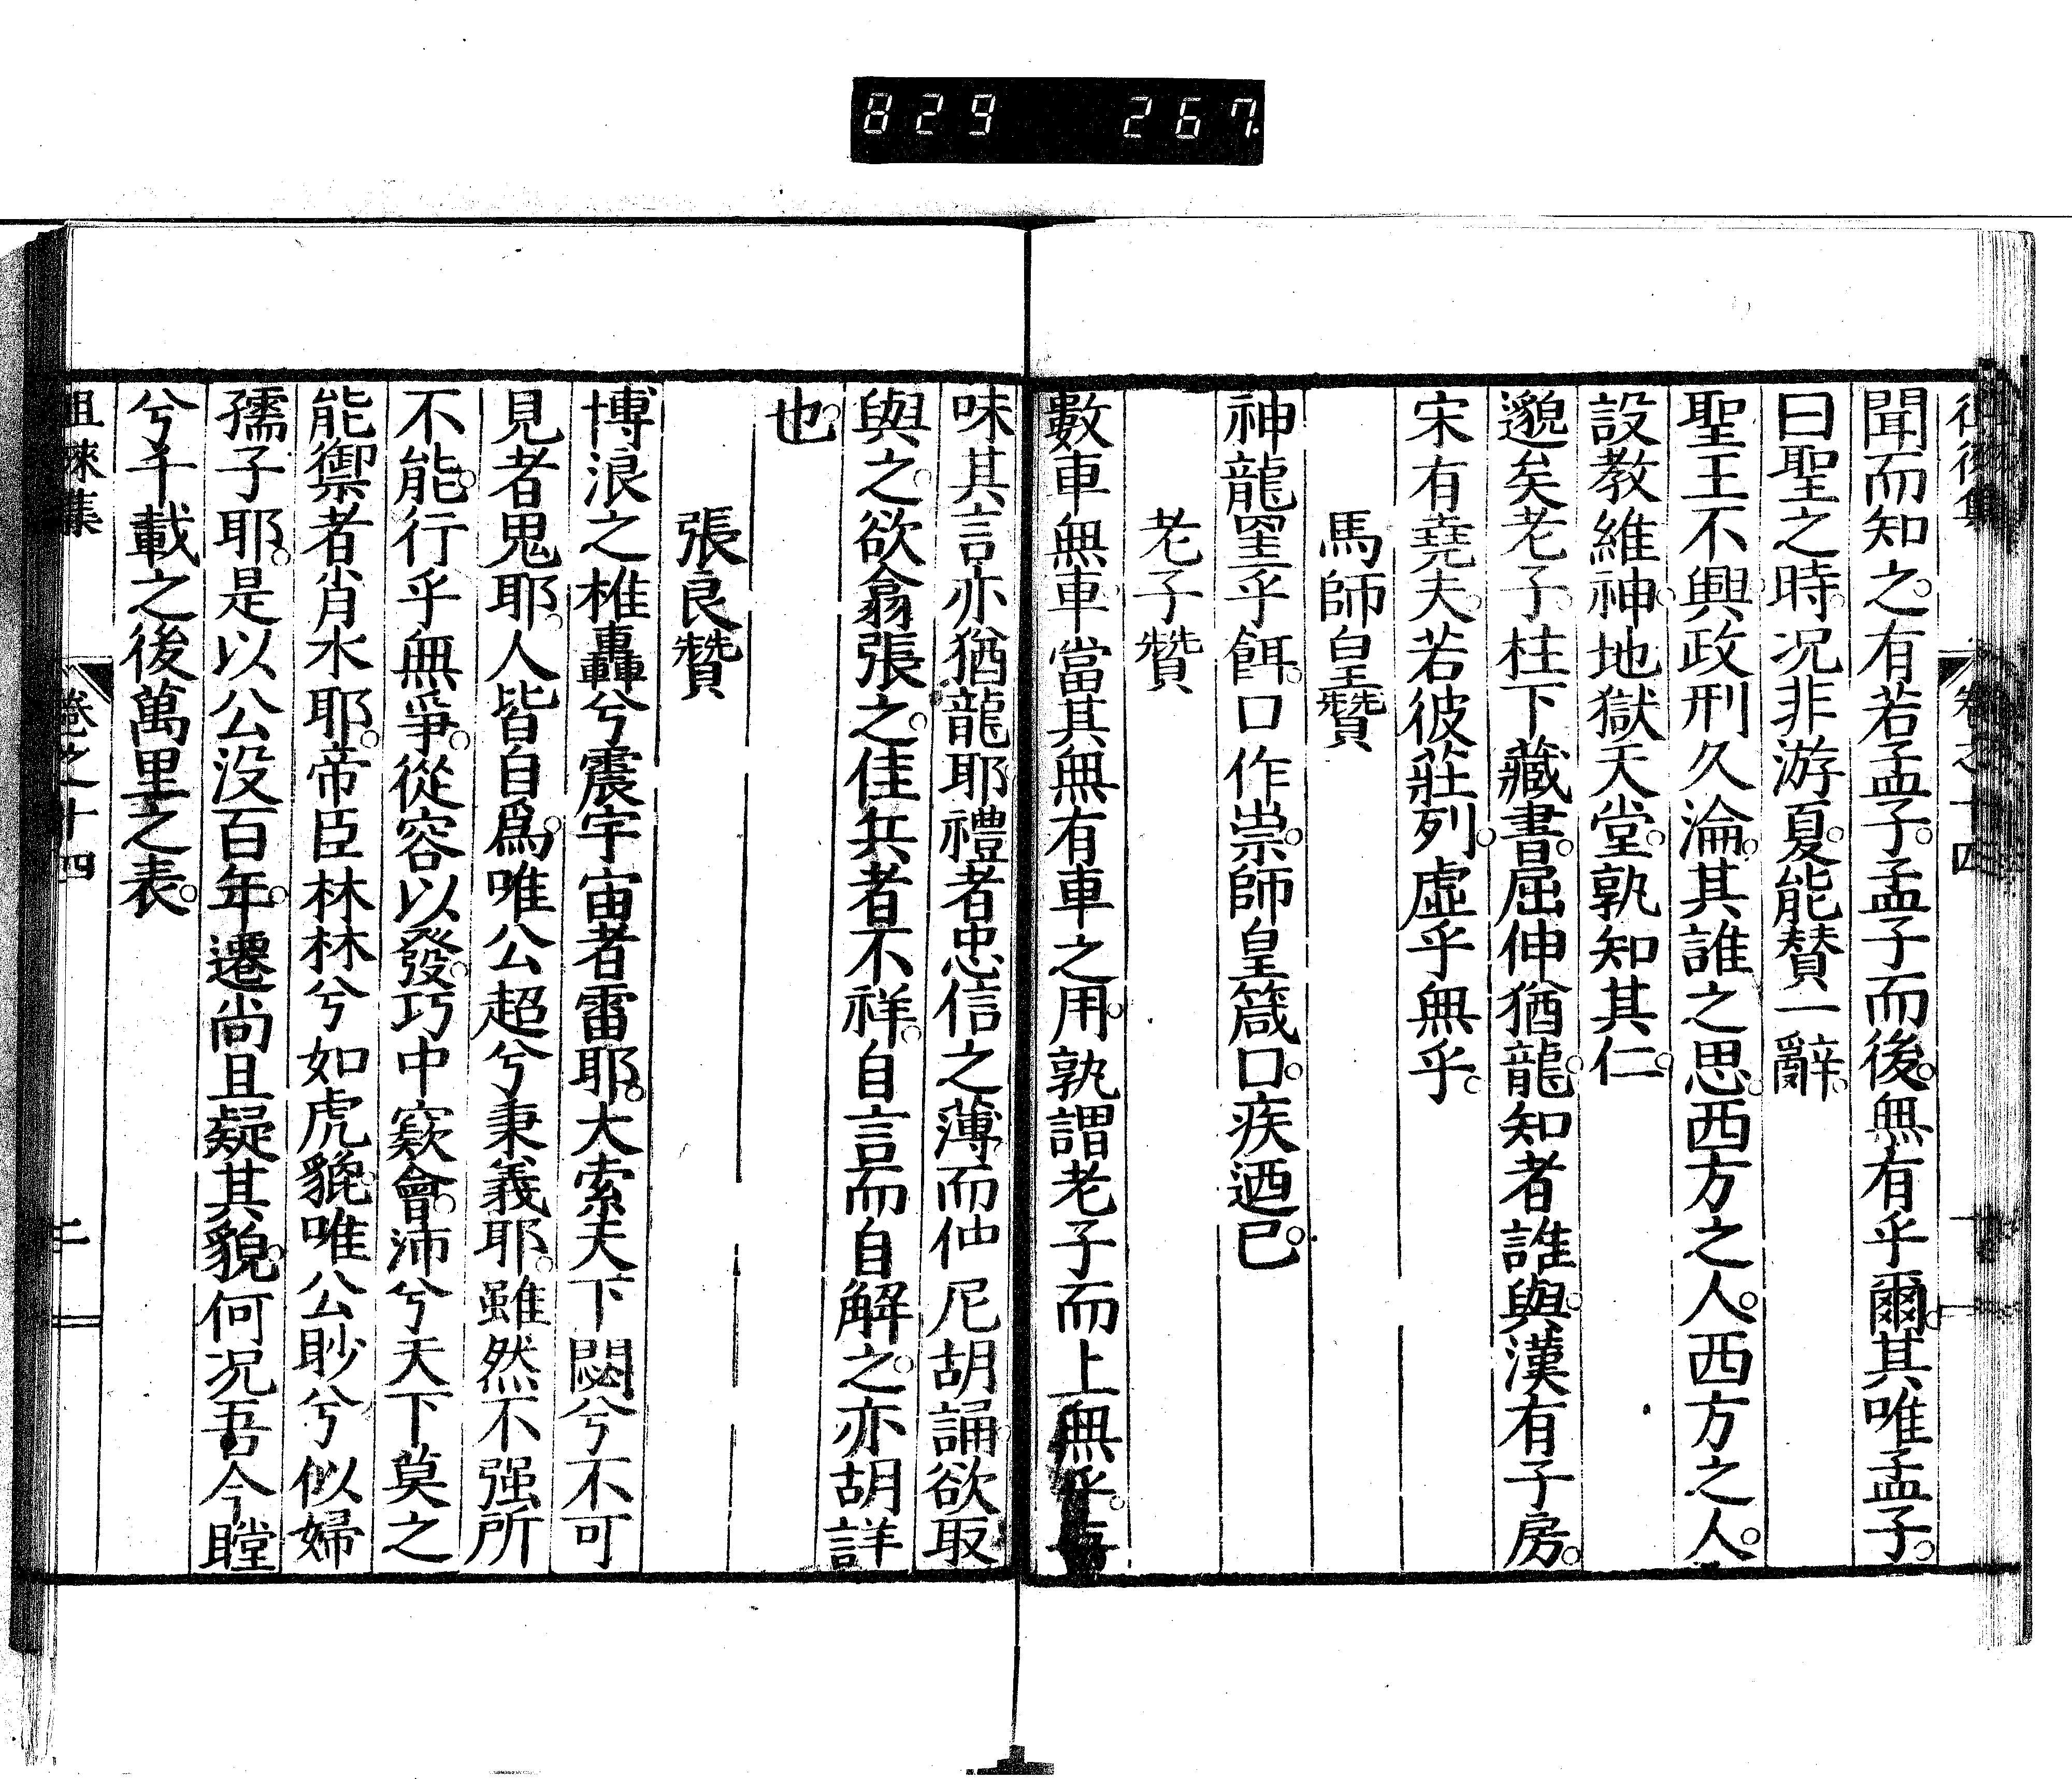 829 267.
聞而知之。有若孟子。孟子而後。無有乎爾。其唯孟子。
曰聖之時。況非游夏。能賛一辭。
聖王不興。政刑久淪。其誰之思。西方之人。西方之人。
設教維神。地獄天堂。孰知其仁。
邈矣老子。柱下藏書。屈伸猶龍。知者誰與。漢有子房。
宋有堯夫。若彼莊列。虛乎無乎。
馬師皇贊
神龍罣乎餌。口作祟。師皇箴口。疾迺已。
老子贊
數車無車。當其無有車之用。孰謂老子而上無乎。
味其言亦猶龍耶。禮者忠信之薄。而仲尼胡誦。欲取
與之。欲翕張之。佳兵者不祥。自言而自解之。亦胡詳
也。
張良贊
博浪之椎。轟兮震宇宙者雷耶。大索天下。閟兮不可
見者鬼耶。人皆自爲。唯公超兮秉義耶。雖然不强所
不能。行乎無爭。從容以發。巧中窾會。沛兮天下莫之
能禦者肖水耶。帝臣林林兮如虎貔。唯公眇兮似婦
孺子耶。是以公没百年。遷尚且疑其貌。何況吾今瞠
兮千載之後萬里之表。
徂徠集 卷之十四 二